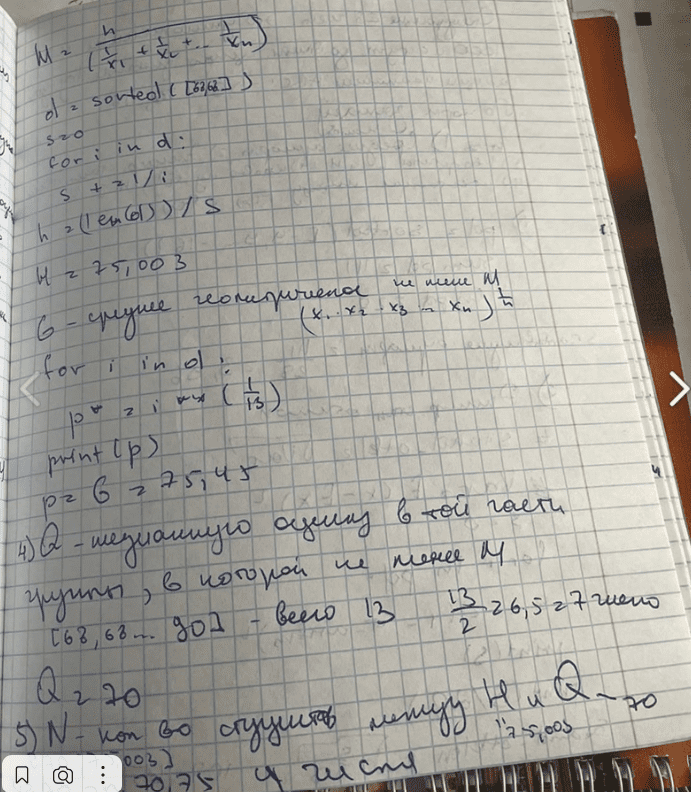 H = n / (1/x₁ + 1/x₂ + ... 1/xₙ)
d = sorted ([68,68])
s=0
for i in d:
s + = 1/i
h = (len(d)) / S
H = 75,003
G - среднее геометрическое не мене M
(x₁ · x₂ · x₃ ... xₙ)^(1/n)
for i in d:
p* = i ** (1/13)
print (p)
p = G = 75,45
4) Q - медианную оценку в той части
группы, в которой не менее M
[68, 68 ... 90] - всего 13 13/2 = 6,5 = 7 число
Q = 70
5) N - кол во студентов между H и Q - 70
75,003
003]
70,75 4 числа